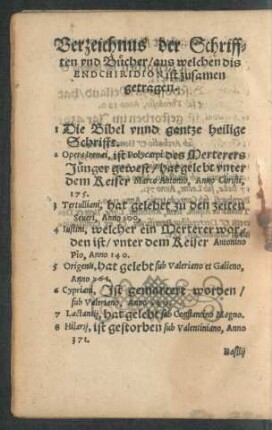 Verzeichnus der Schriff-
ten vnd Bücher/aus welchen dis
ENDCHIRIDION, ist zusamen
getragen.
1 Die Bibel vnnd gantze heilige
Schrifft.
2 Opera Irenæi, ist Polycarpi des Merterers
Jünger gewest/hat gelebt vnter
dem Keiser Marco Antonio, Anno Christi,
175.
3 Tertulliani, hat gelebet zu den zeiten
Seueri, Anno 200.
4 Iustini, welcher ein Merterer wor-
den ist/vnter dem Keiser Antonino
Pio, Anno 140.
5 Origenis, hat gelebt sub Valeriano et Galieno,
Anno 261.
6 Cypriani, Ist gemartert worden/
sub Valeriano, Anno
7 Lactantij, hat gelebt sub Constantino Magno.
8 Hilarij, ist gestorben sub Valentiniano, Anno
371.
Basilij